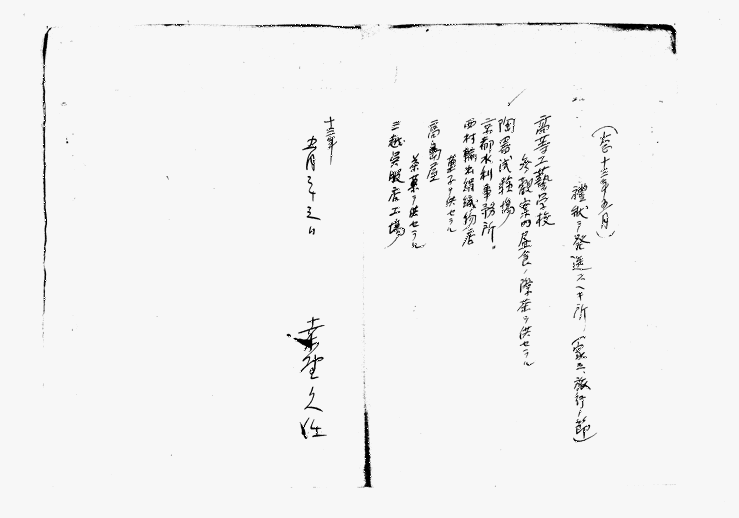 (大正十三年五月)
禮狀ヲ発送スヘキ所、(家三、旅行ノ節)
高等工藝学校
参観案内昼食ノ際茶ヲ供セラル
陶器試驗場
京都水利事務所。
西村輸出絹織物店
菓子ヲ供セラル
高島屋
茶菓ヲ供セラル
三越呉服店工場
十三年
五月三十三日
久